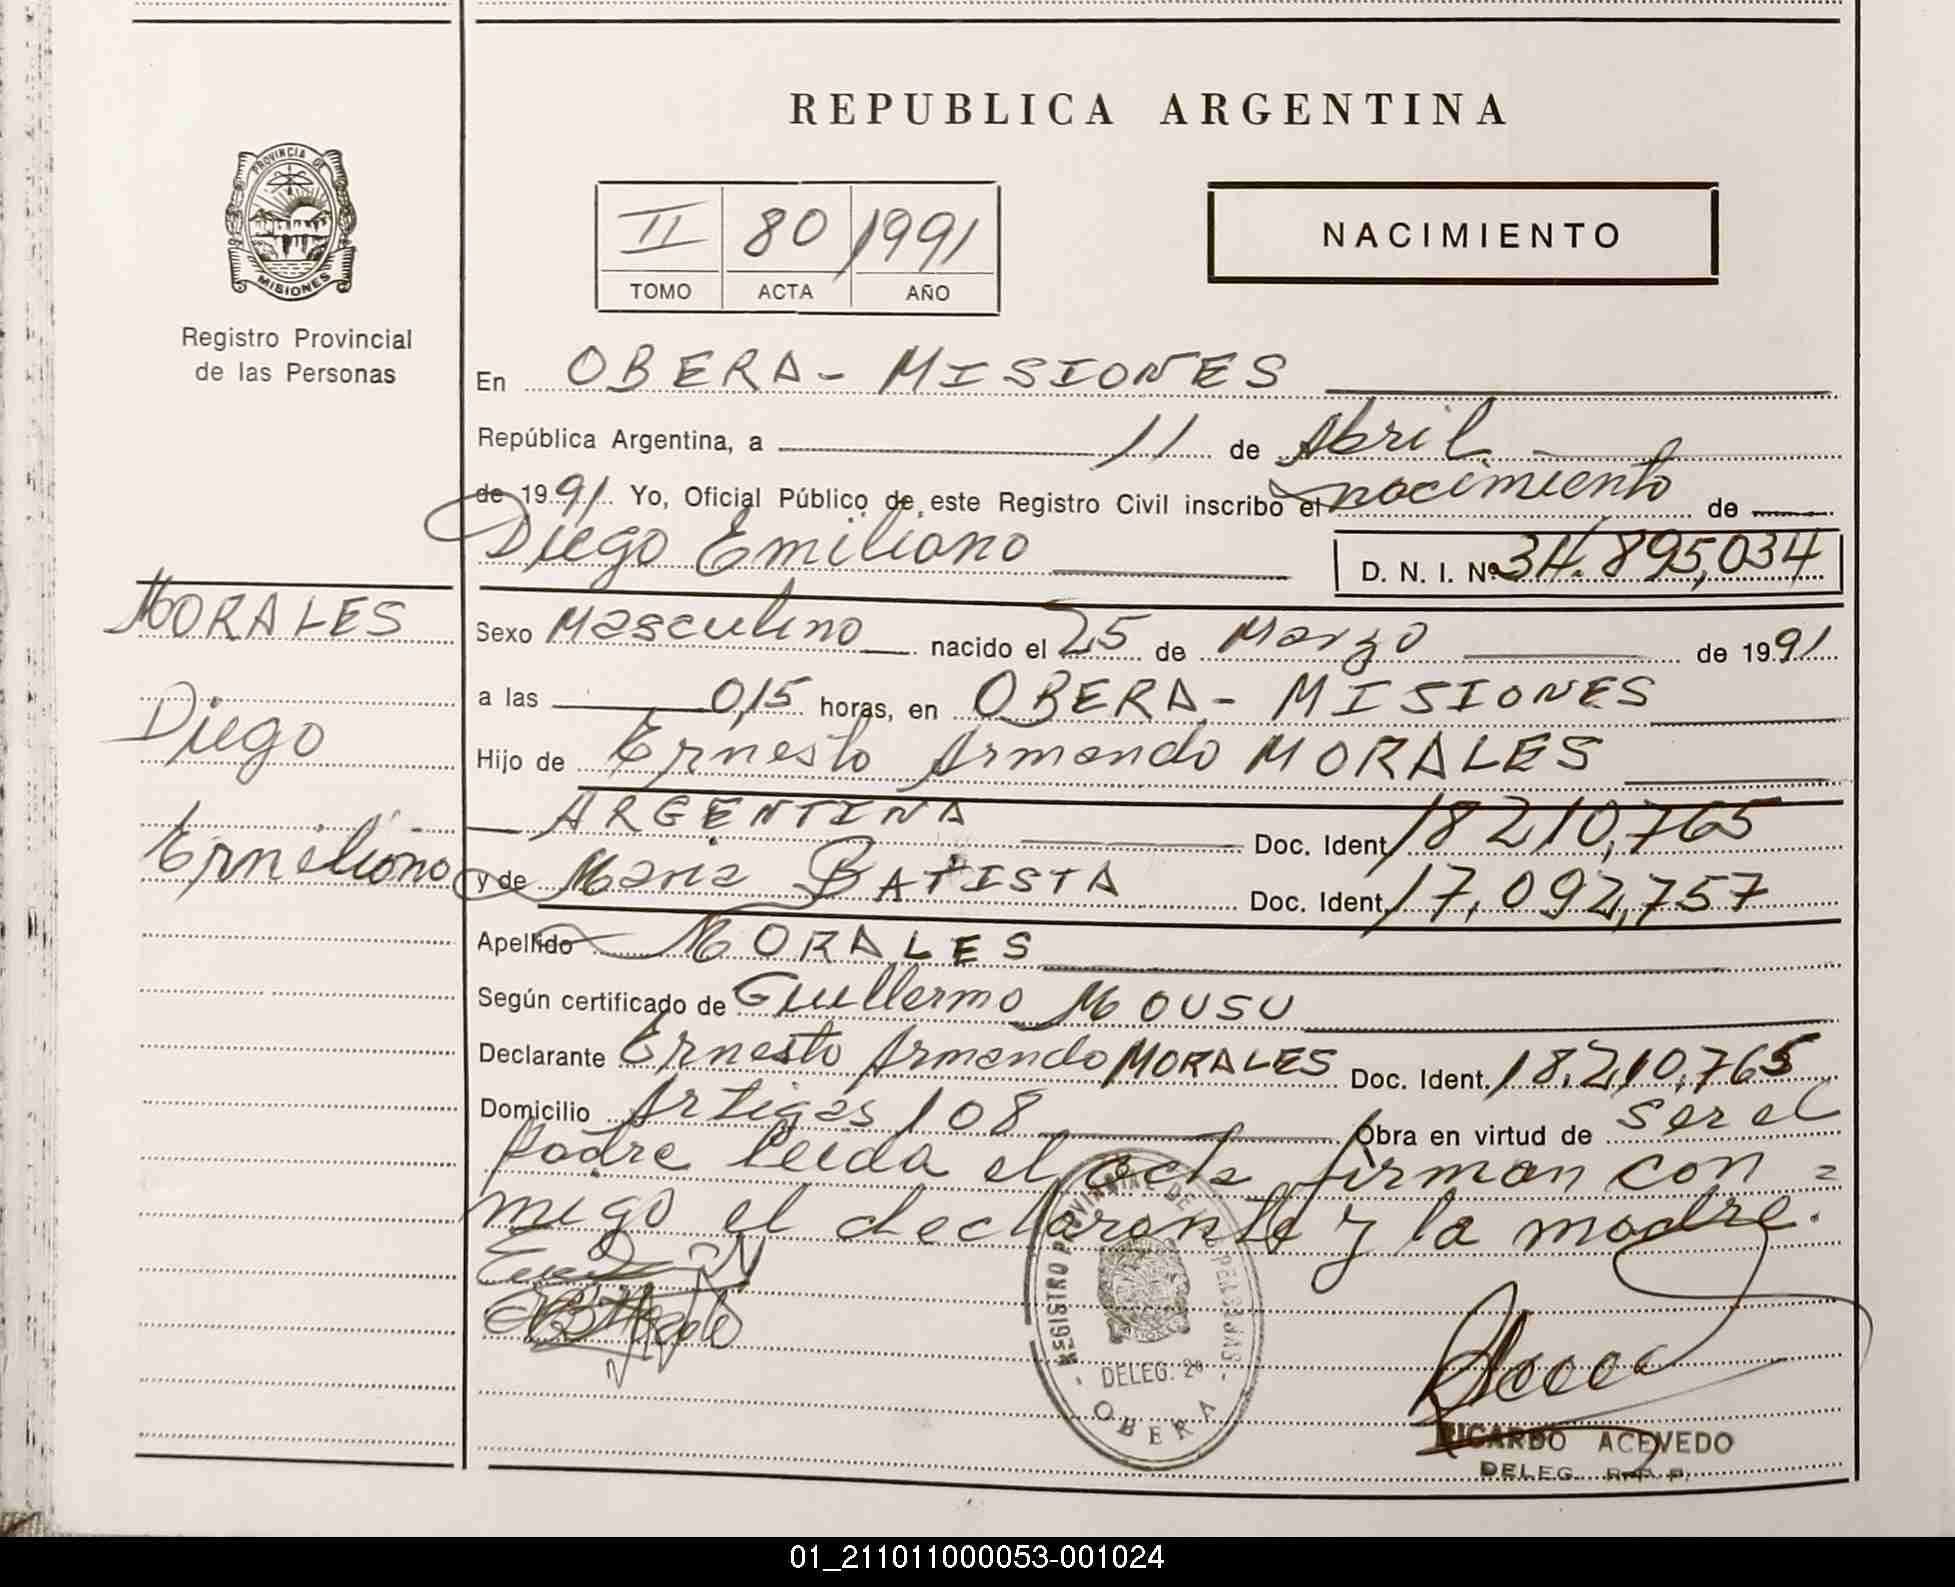 REPUBLICA ARGENTINA
PROVINCIA DE
MISIONES
Registro Provincial
de las Personas
II 80 1991
TOMO ACTA AÑO
NACIMIENTO
En OBERA - MISIONES
República Argentina, a 11 de Abril
de 1991 Yo, Oficial Público de este Registro Civil inscribo el nacimiento de
Diego Emiliano D. N. I. Nº 34.895,034
MORALES
Diego
Emiliano
Sexo Masculino nacido el 25 de Marzo de 1991
a las 0,15 horas, en OBERA - MISIONES
Hijo de Ernesto Armando MORALES
ARGENTINA Doc. Ident. 18210,765
y de Maria BATISTA Doc. Ident. 17,092,757
Apellido MORALES
Según certificado de Guillermo MOUSU
Declarante Ernesto Armando MORALES Doc. Ident. 18.210.765
Domicilio Artigas 108 Obra en virtud de ser el
Padre leida el acta firman con =
migo el declarante y la madre.
REGISTRO PROVINCIAL DE LAS PERSONAS
DELEG. 2º
OBERA
RICARDO ACEVEDO
DELEG. R. P. P.
01_211011000053-001024